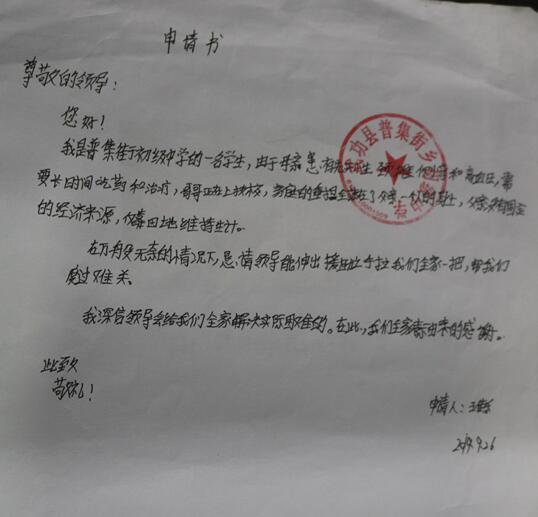 申请书
尊敬的领导:
您好!
我是普集街初级中学的一名学生,由于母亲患有先天性颈椎 和高血压,需
要长时间吃药和治疗,哥哥正在上技校,家庭的重担全落在了父亲一人的身上,父亲没有固定
的经济来源,仅靠田地维持生计。
在万般无奈的情况下,恳请领导能伸出援助之手拉我们全家一把,帮我们
度过难关。
我深信领导会给我们全家解决实际困难的。在此,我们全家表示由衷的感谢。
此致
敬礼!
申请人:王
2019.9.26
武功县普集街乡 中学